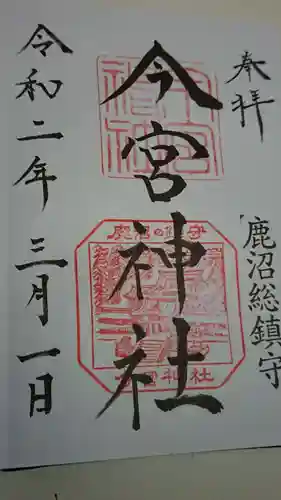 奉拝
鹿沼総鎮守
今宮神社
令和二年三月一日